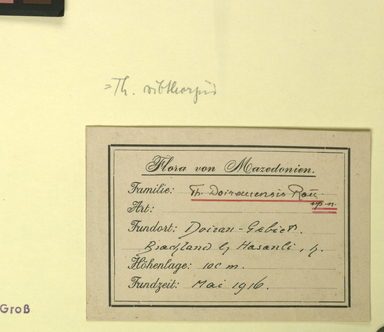 = Th. sibthorpii
Flora von Mazedonien.
Familie: Th. Doiranensis Roń.
sp. n.
Art:
Fundort: Doiran-Gebiet.
Brachland b Hasanli, h.
Höhenlage: 100 m.
Fundzeit: Mai 1916.
Groß